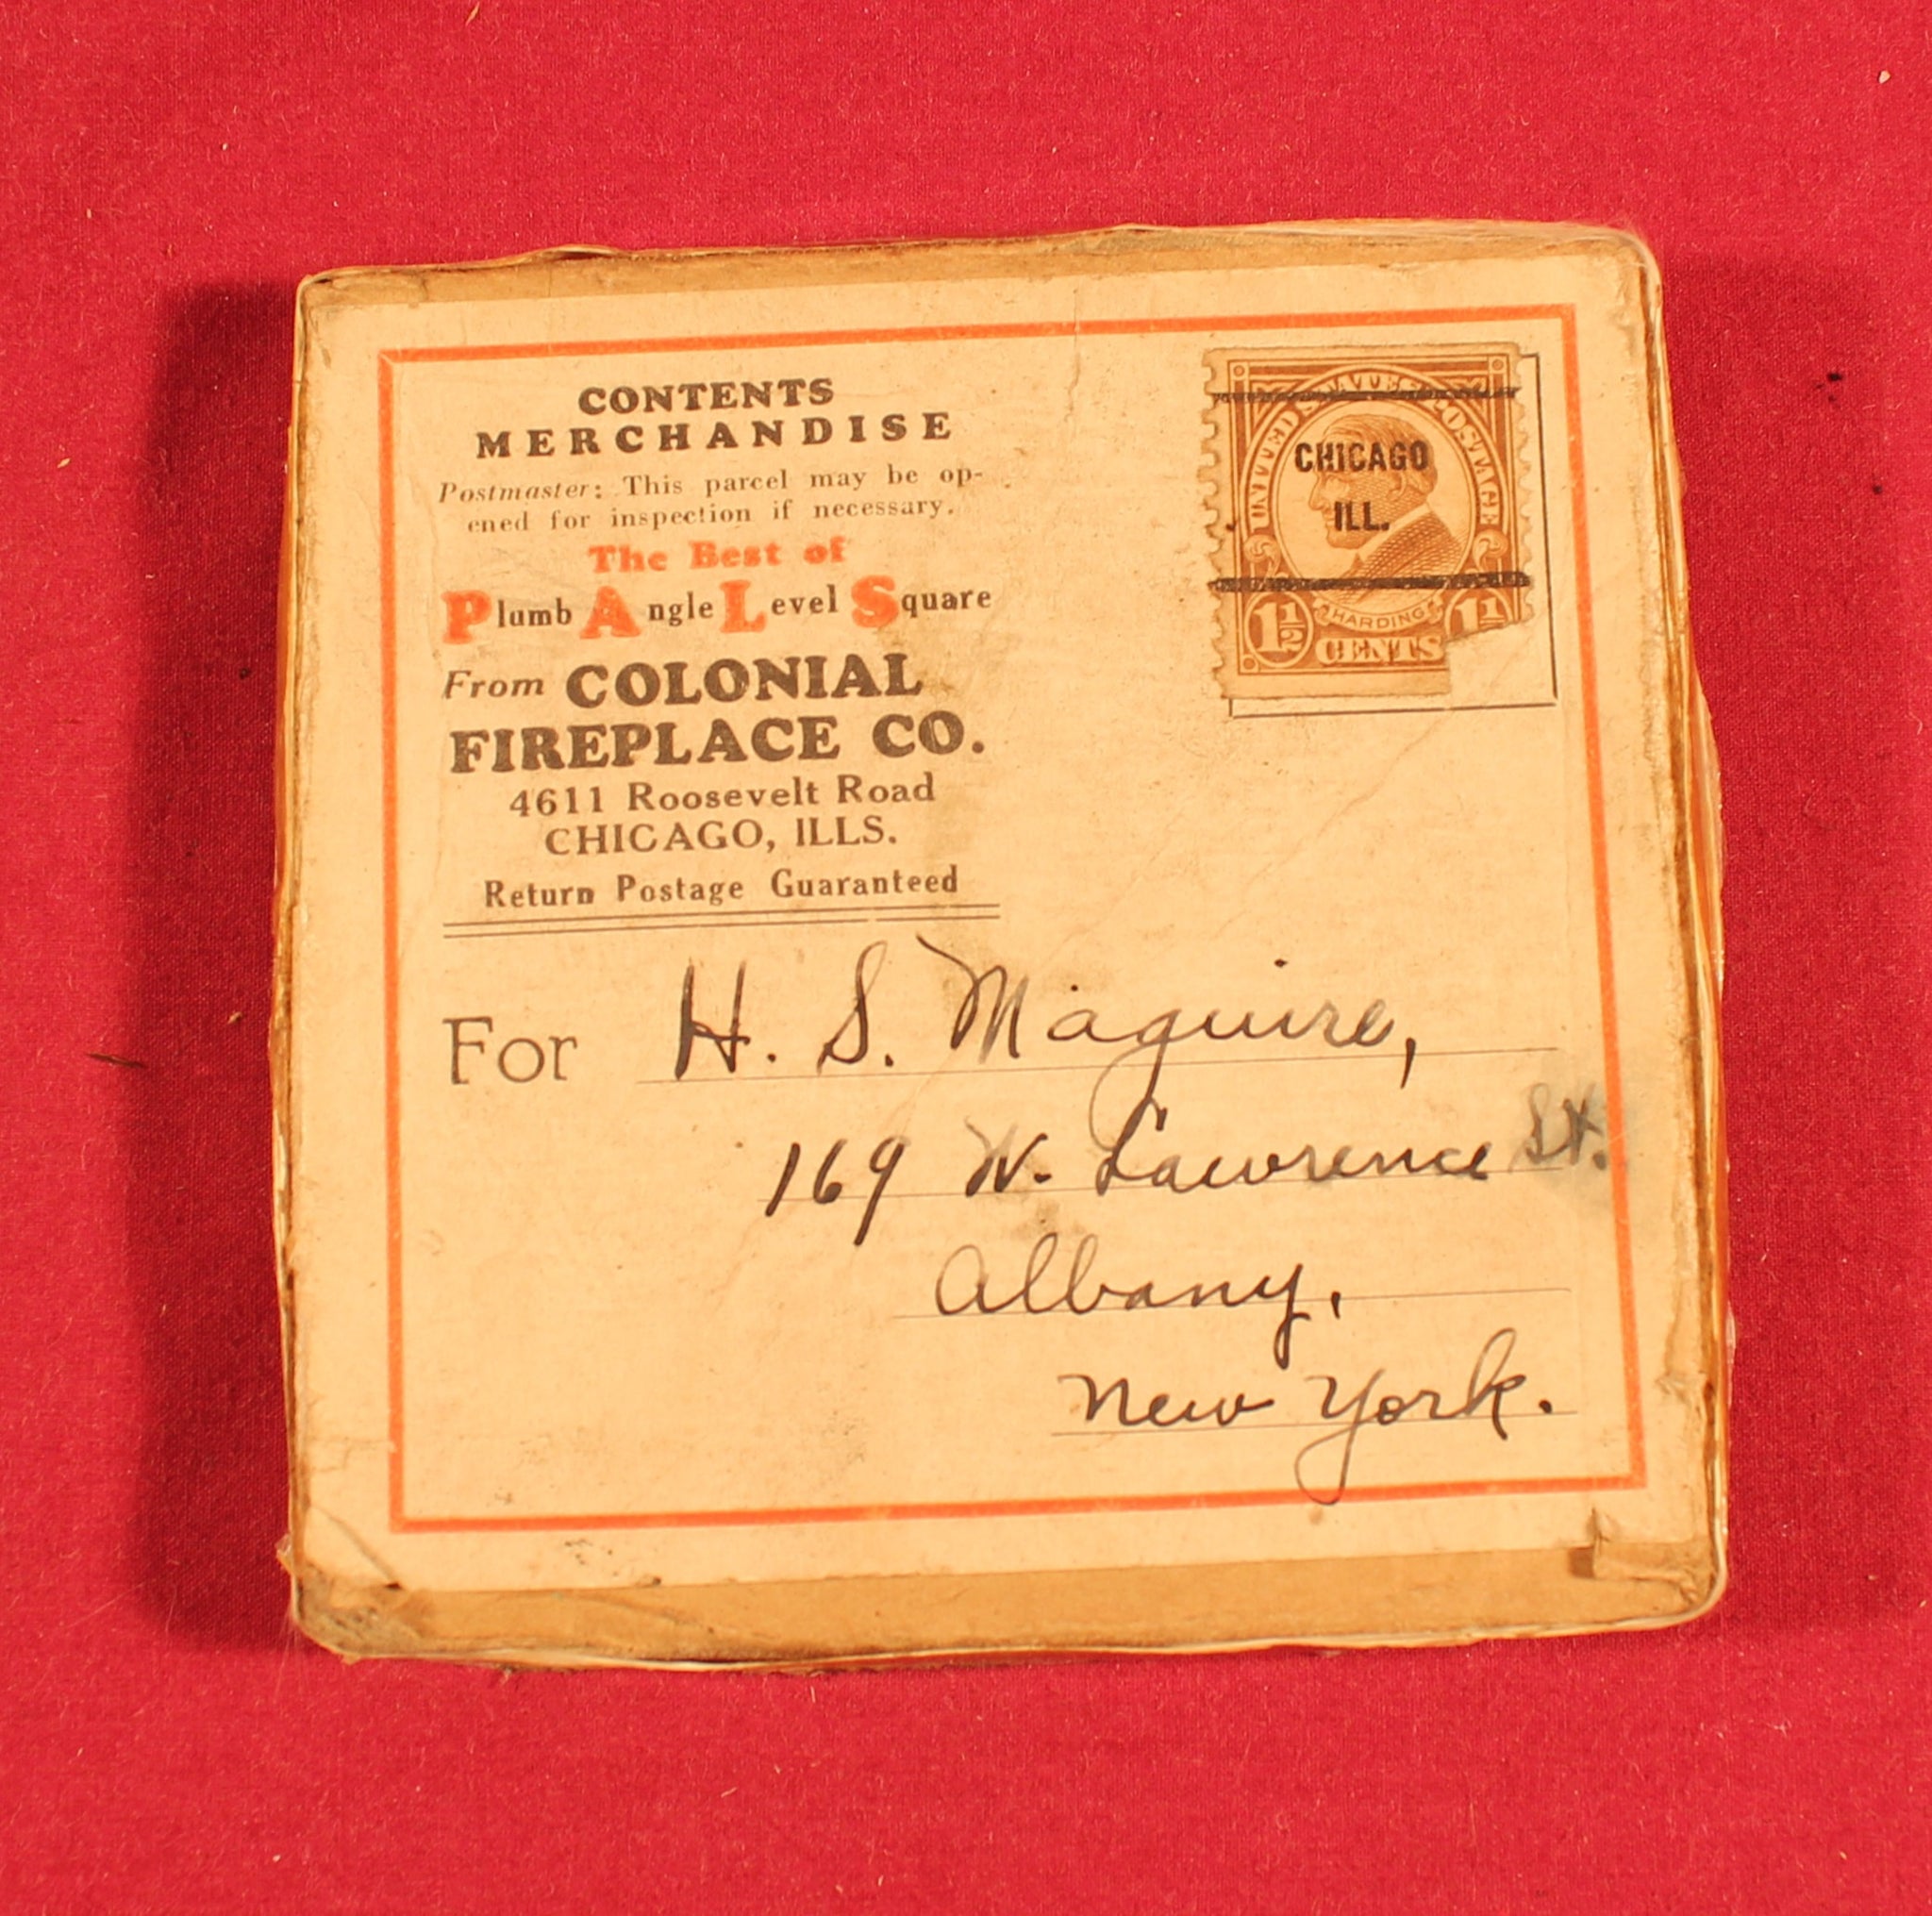 CONTENTS
MERCHANDISE
Postmaster: This parcel may be op-
ened for inspection if necessary.
The Best of
Plumb Angle Level Square
From COLONIAL
FIREPLACE CO.
4611 Roosevelt Road
CHICAGO, ILLS.
Return Postage Guaranteed
UNITED STATES POSTAGE
CHICAGO
ILL.
HARDING
1½ CENTS 1½
For H. S. Maguire,
169 W. Lawrence St.
Albany,
New York.